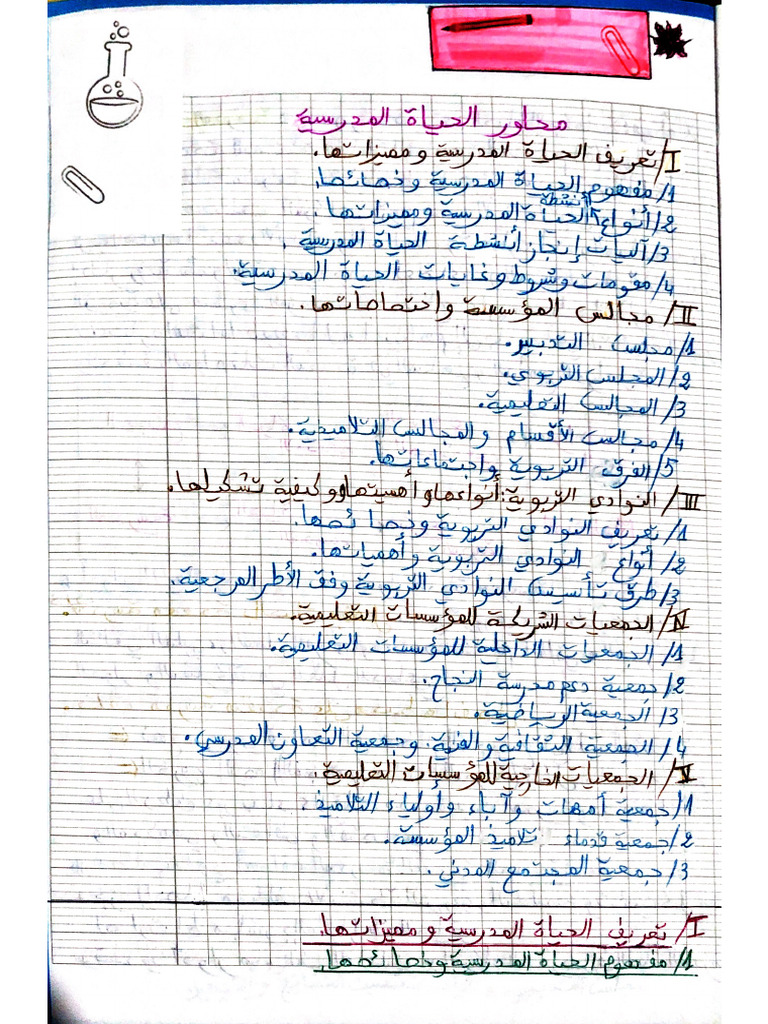 محاور الحياة المدرسية
I/ تعريف الحياة المدرسية ومميزاتها.
1/ مفهوم الحياة المدرسية وخصائصها.
2/ أنواع أنشطة الحياة المدرسية ومميزاتها.
3/ آليات إنجاز أنشطة الحياة المدرسية.
4/ مقومات وشروط وغايات الحياة المدرسية.
II/ مجالس المؤسسة واختصاصاتها.
1/ مجلس التدبير.
2/ المجلس التربوي.
3/ المجالس التعليمية.
4/ مجالس الأقسام والمجالس التلاميذية.
5/ الفرق التربوية واجتماعاتها.
III/ النوادي التربوية: أنواعها وأهميتها وكيفية تشكيلها.
1/ تعريف النوادي التربوية وخصائصها.
2/ أنواع النوادي التربوية وأهمياتها.
3/ طرق تأسيس النوادي التربوية وفق الأطر المرجعية.
IV/ الجمعيات الشريكة للمؤسسات التعليمية.
1/ الجمعيات الداخلية للمؤسسات التعليمية.
2/ جمعية دعم مدرسة النجاح.
3/ الجمعية الرياضية.
4/ الجمعية الثقافية والفنية. وجمعية التعاون المدرسي.
V/ الجمعيات الخارجية للمؤسسات التعليمية.
1/ جمعية أمهات وآباء وأولياء التلاميذ.
2/ جمعية قدماء تلاميذ المؤسسة.
3/ جمعية المجتمع المدني.
I/ تعريف الحياة المدرسية ومميزاتها.
1/ مفهوم الحياة المدرسية وخصائصها.